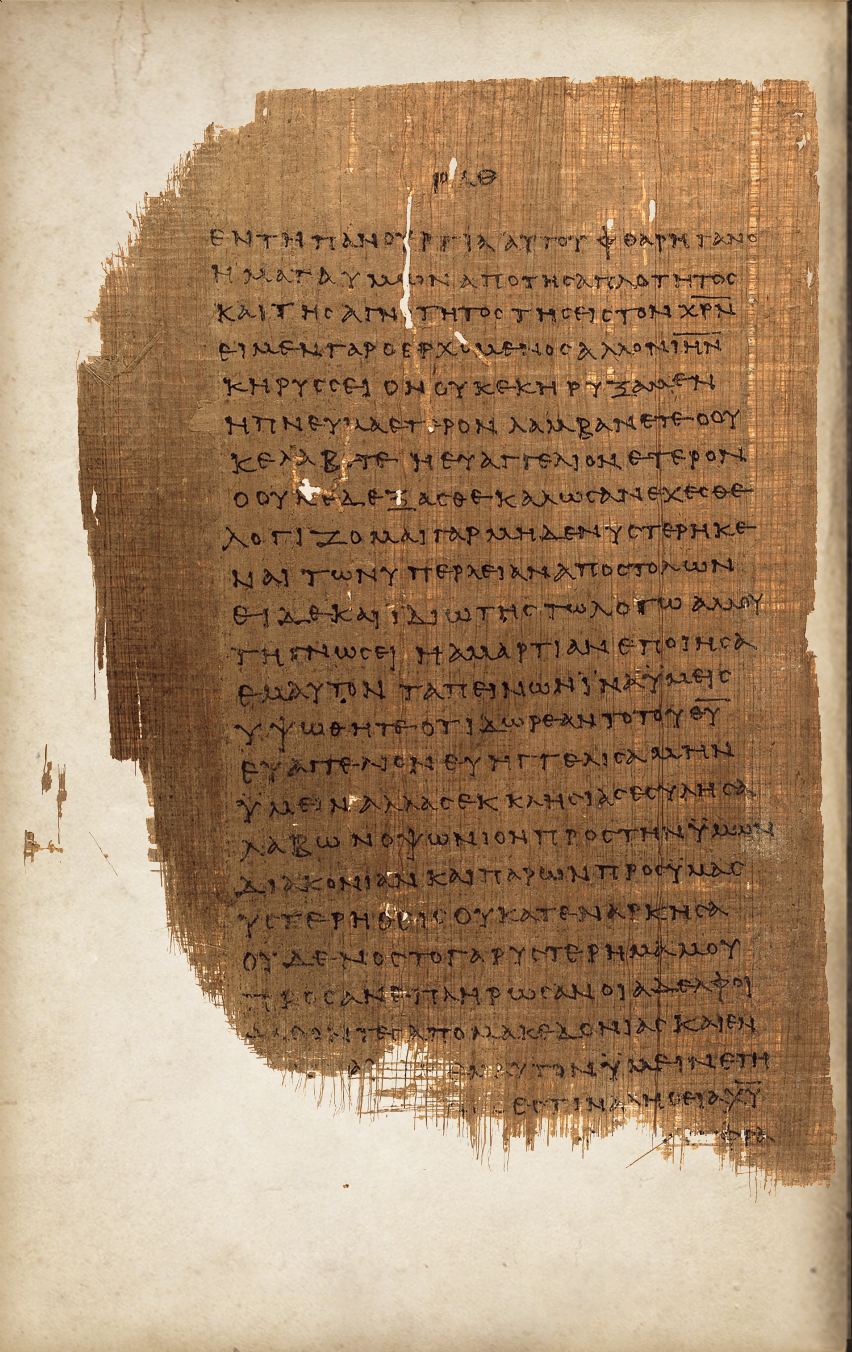 ΡΛΘ
ΕΝΤΗΠΑΝΟΥΡΓΙΑΑΥΤΟΥΦΘΑΡΗΤΑΝΟ
ΗΜΑΤΑΥΜΩΝΑΠΟΤΗϹΑΠΛΟΤΗΤΟϹ
ΚΑΙΤΗϹΑΓΝΟΤΗΤΟϹΤΗϹΕΙϹΤΟΝΧ̅Ρ̅Ν̅
ΕΙΜΕΝΓΑΡΟΕΡΧΟΜΕΝΟϹΑΛΛΟΝΙ̅Η̅Ν̅
ΚΗΡΥϹϹΕΙΟΝΟΥΚΕΚΗΡΥΞΑΜΕΝ
ΗΠΝΕΥΜΑΕΤΕΡΟΝΛΑΜΒΑΝΕΤΕΟΟΥ
ΚΕΛΑΒΕΤΕΗΕΥΑΓΓΕΛΙΟΝΕΤΕΡΟΝ
ΟΟΥΚΕΔΕΞΑϹΘΕΚΑΛΩϹΑΝΕΧΕϹΘΕ
ΛΟΓΙΖΟΜΑΙΓΑΡΜΗΔΕΝΥϹΤΕΡΗΚΕ
ΝΑΙΤΩΝΥΠΕΡΛΕΙΑΝΑΠΟϹΤΟΛΩΝ
ΕΙΔΕΚΑΙΪΔΙΩΤΗϹΤΩΛΟΓΩΑΛΛΟΥ
ΤΗΓΝΩϹΕΙΗΑΜΑΡΤΙΑΝΕΠΟΙΗϹΑ
ΕΜΑΥΤΟΝΤΑΠΕΙΝΩΝΪΝΑΫΜΕΙϹ
ΥΨΩΘΗΤΕΟΤΙΔΩΡΕΑΝΤΟΤΟΥΘ̅Υ̅
ΕΥΑΓΓΕΛΙΟΝΕΥΗΓΓΕΛΙϹΑΜΗΝ
ΫΜΕΙΝΑΛΛΑϹΕΚΚΛΗϹΙΑϹΕϹΥΛΗϹΑ
ΛΑΒΩΝΟΨΩΝΙΟΝΠΡΟϹΤΗΝΫΜΩΝ
ΔΙΑΚΟΝΙΑΝΚΑΙΠΑΡΩΝΠΡΟϹΫΜΑϹ
ΥϹΤΕΡΗΘΕΙϹΟΥΚΑΤΕΝΑΡΚΗϹΑ
ΟΥΔΕΝΟϹΤΟΓΑΡΥϹΤΕΡΗΜΑΜΟΥ
ΠΡΟϹΑΝΕΠΛΗΡΩϹΑΝΟΙΑΔΕΛΦΟΙ
ΕΛΘΟΝΤΕϹΑΠΟΜΑΚΕΔΟΝΙΑϹΚΑΙΕΝ
ΕΜΑΥΤΟΝΫΜΕΙΝΕΤΗ
ΕϹΤΙΝΑΛΗΘΕΙΑΧ̅Υ̅
ΦΡΑ